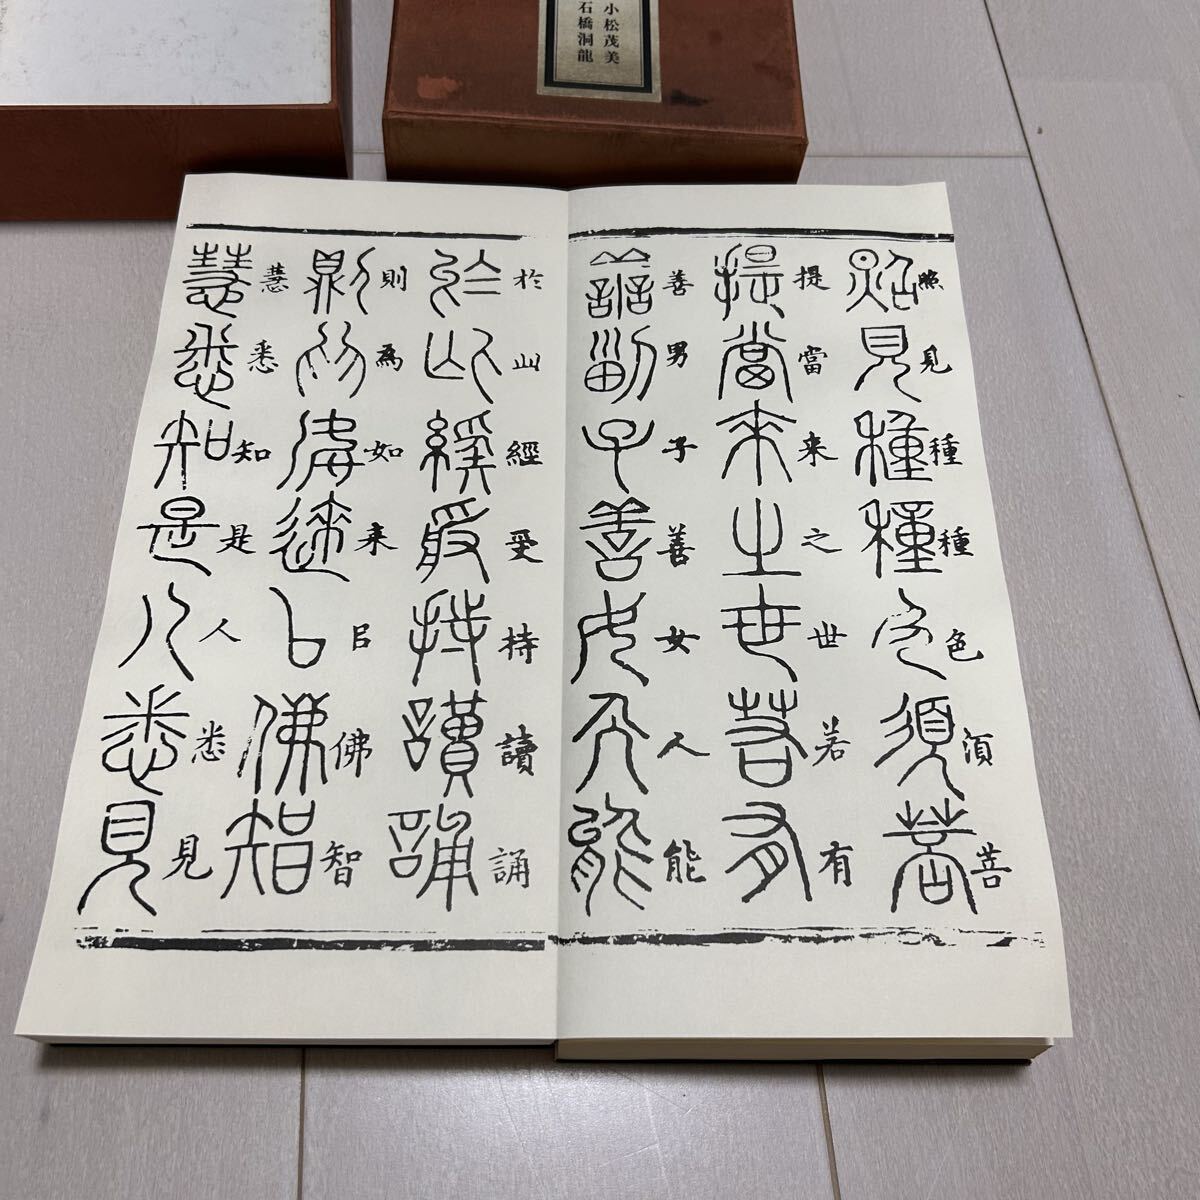 小松茂美
石橋洞龍
照見種種色須菩
提當来之世若有
善男子善女人能
於此經受持讀誦
則為如来㠯佛智
慧悉知是人悉見